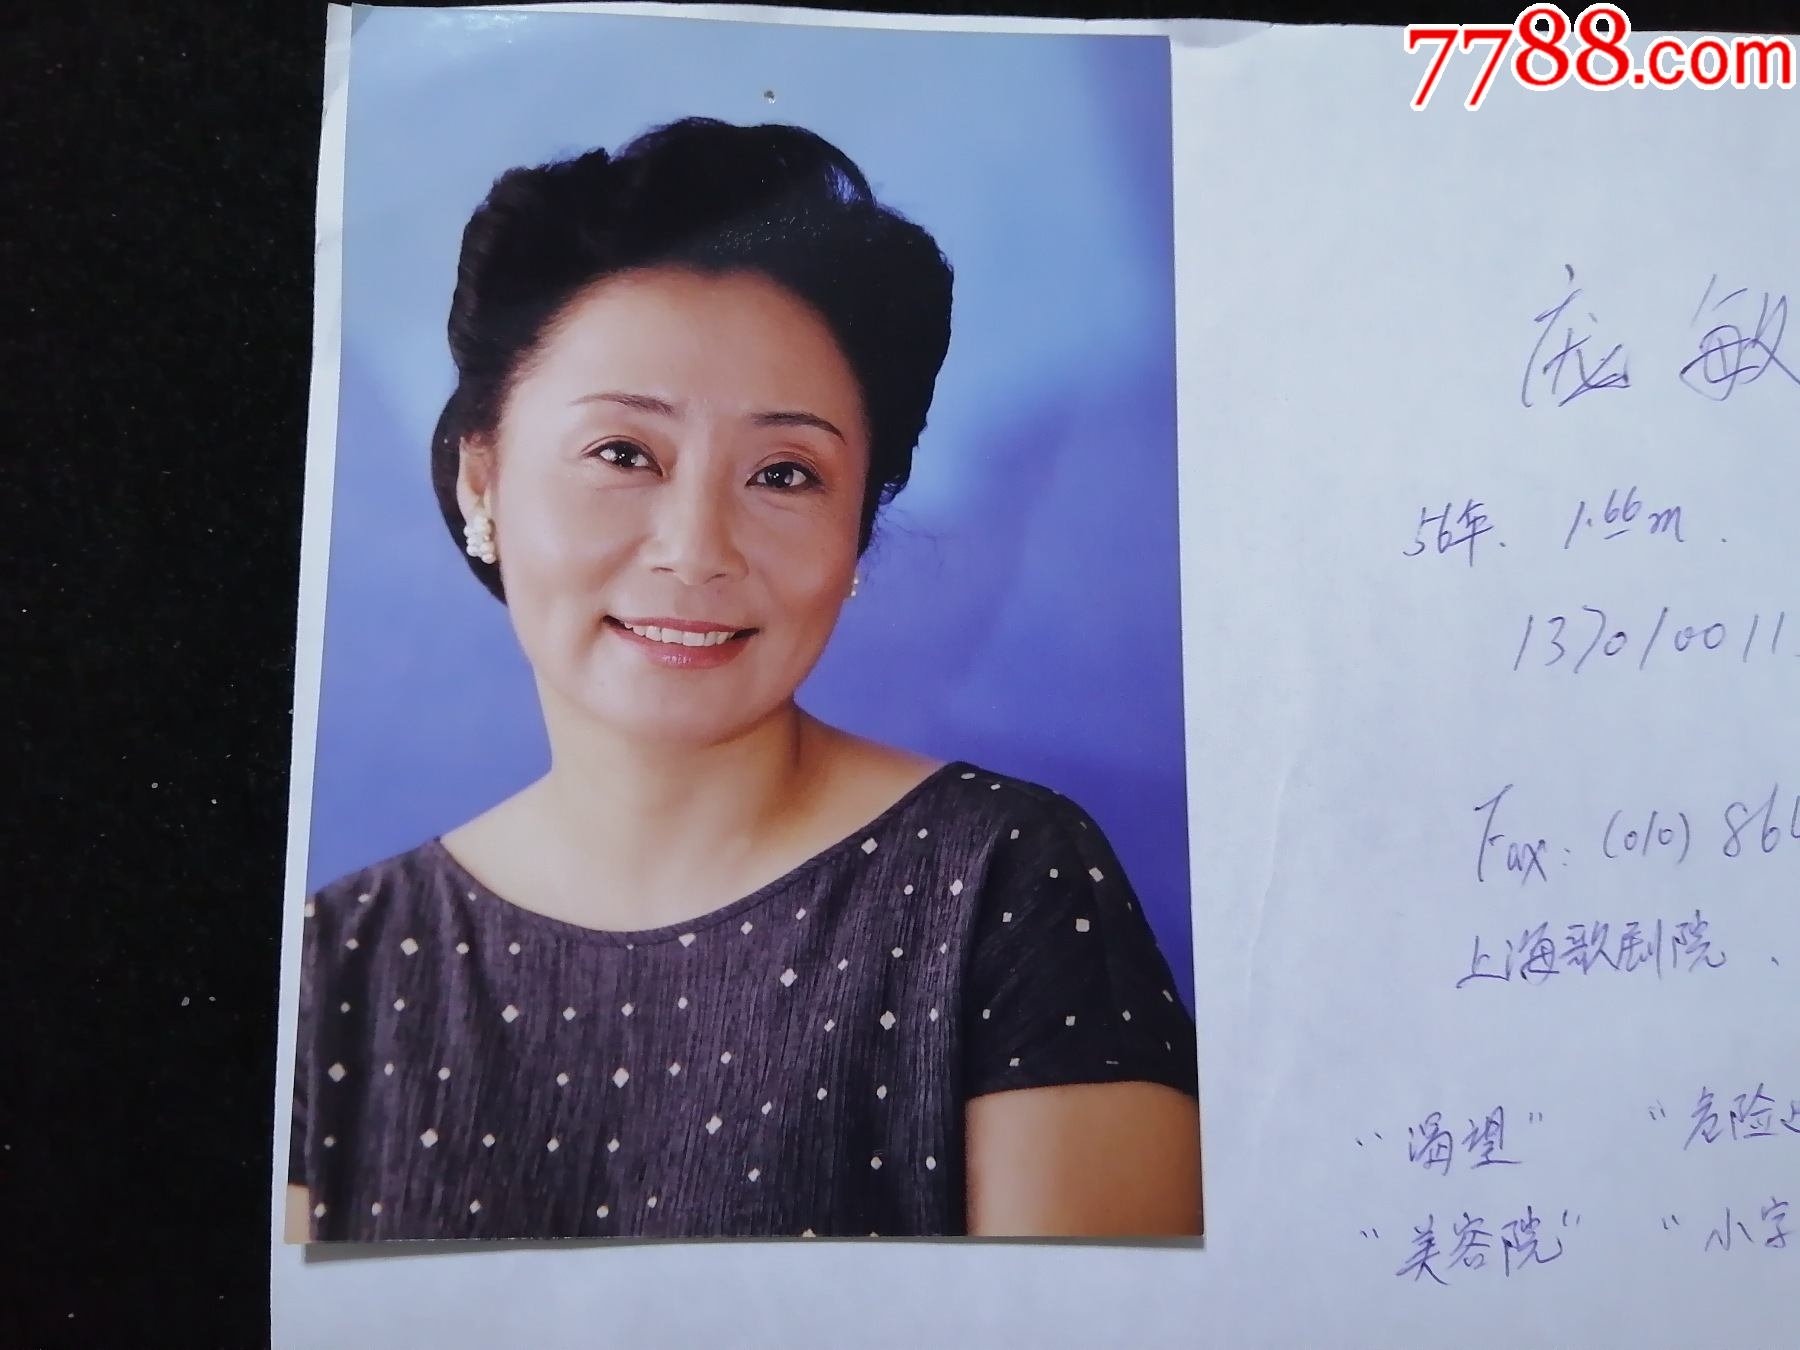 7788.com
庞敏
56年. 1.66m.
137010011
Fax: (010) 86
上海歌剧院、
"渴望" "危险
"美容院" "小字